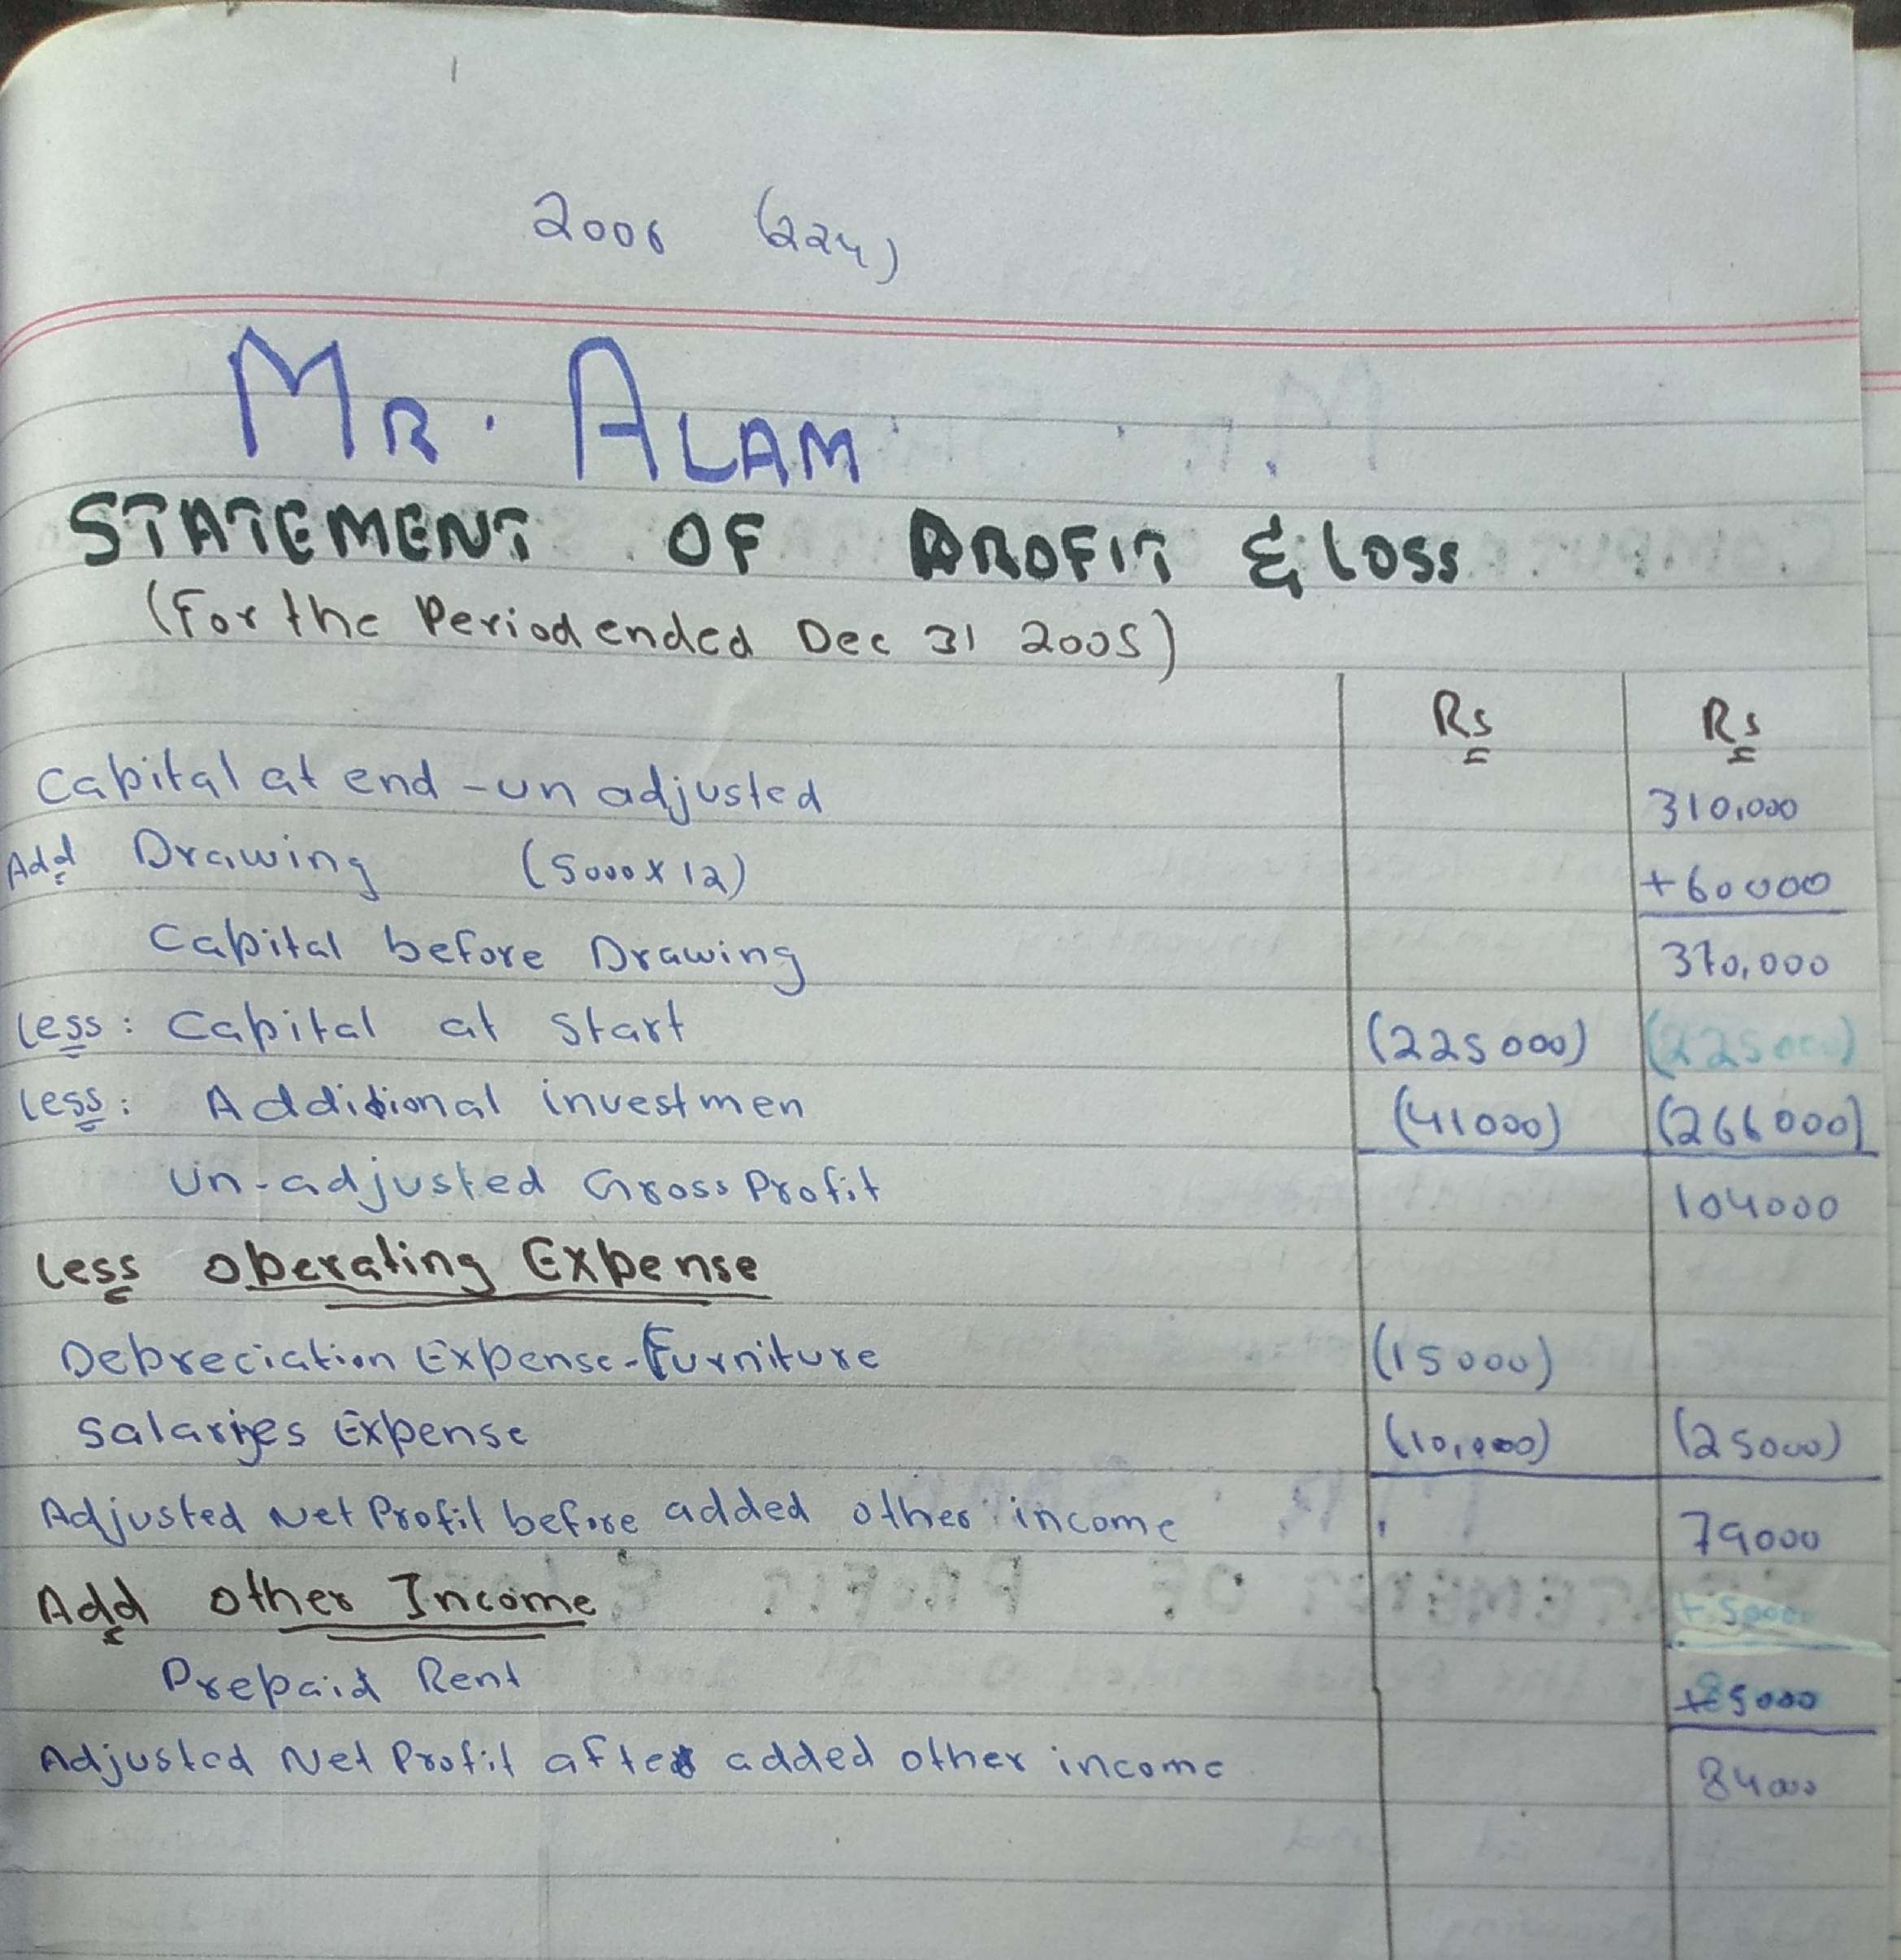 2006 (224)
MR. ALAM
STATEMENT OF PROFIT & LOSS
(For the Period ended Dec 31 2005)
Rs Rs
Capital at end - un adjusted 310,000
Add Drawing (5000 x 12) +60000
Capital before Drawing 370,000
Less: Capital at Start (225000) (225000)
Less: Additional investmen (41000) (266000)
Un-adjusted Gross Profit 104000
Less Operating Expense
Depreciation Expense - Furniture (15000)
Salaries Expense (10,000) (25000)
Adjusted Net Profit before added other income 79000
Add Other Income +5000
Prepaid Rent +5000
Adjusted Net Profit after added other income 84000